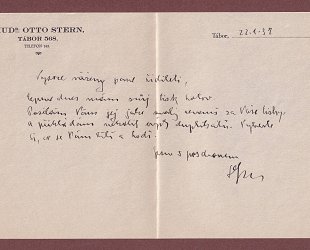 JUDR. OTTO STERN,
TÁBOR 568.
TELEFON
Tábor,
Vysoce vážený pane řediteli,
teprve dnes mám svůj lístek hotov.
Posílám Vám jej jako malý revanš za Vaše lístky
a přikládám několik svých duplikátů. Vyberte
si, co se Vám líbí a hodí.
Jsem s pozdravem